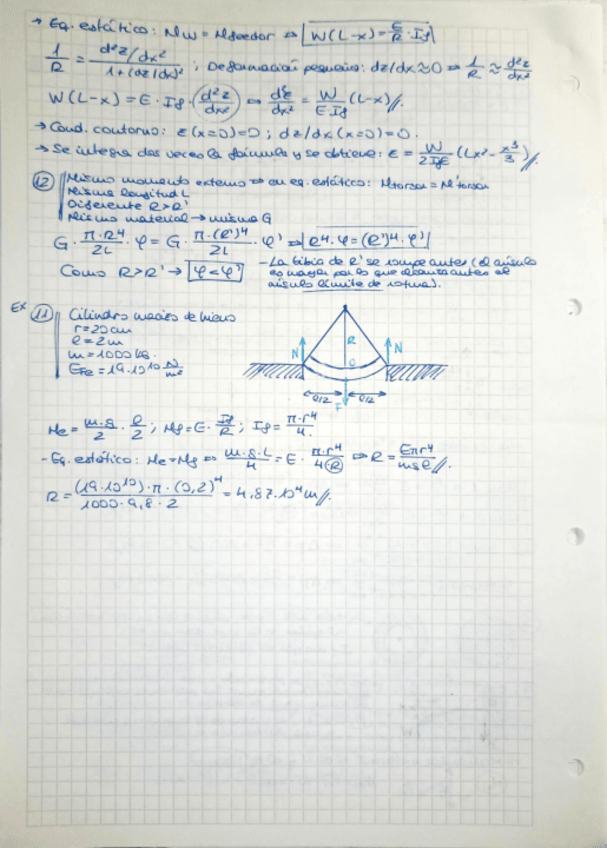 → Eq. estático: Mw = Mflector ⇒ W(L-x) = E/R · If
1/R = d²z/dx² / 1+(dz/dx)² ; Deformación pequeña: dz/dx ≈ 0 ⇒ 1/R ≈ d²z/dx²
W(L-x) = E · If · (d²z/dx²) ⇒ d²z/dx² = W/EIf (L-x)//.
→ Cond. contorno: z(x=0)=0 ; dz/dx(x=0)=0.
→ Se integra dos veces la fórmula y se obtiene: z = W/2IfE (Lx² - x³/3)//.
12 Mismo momento externo ⇒ en eq. estático: Mtorsor = M'torsor
Misma longitud L
Diferente R>R'
Mismo material → mismo G
G · π·R⁴/2L · φ = G · π·(R')⁴/2L · φ' ⇒ R⁴·φ = (R')⁴·φ'
Como R>R' → φ<φ'
- La tibia de R' se rompe antes (el ángulo
es mayor por lo que alcanza antes el
ángulo límite de rotura).
Ex 11 Cilindro macizo de hierro
r = 20cm
l = 2m
m = 1000 kg.
EFe = 19·10¹⁰ N/m²
N R N
O
l/2 l/2
F
Me = m·g/2 · l/2 ; Mf = E · If/R ; If = π·r⁴/4.
- Eq. estático: Me = Mf ⇒ m·g·L/4 = E · π·r⁴/4R ⇒ R = Eπr⁴/mgl//.
R = (19·10¹⁰)·π·(0,2)⁴/1000·9,8·2 = 4,87·10⁴m//.